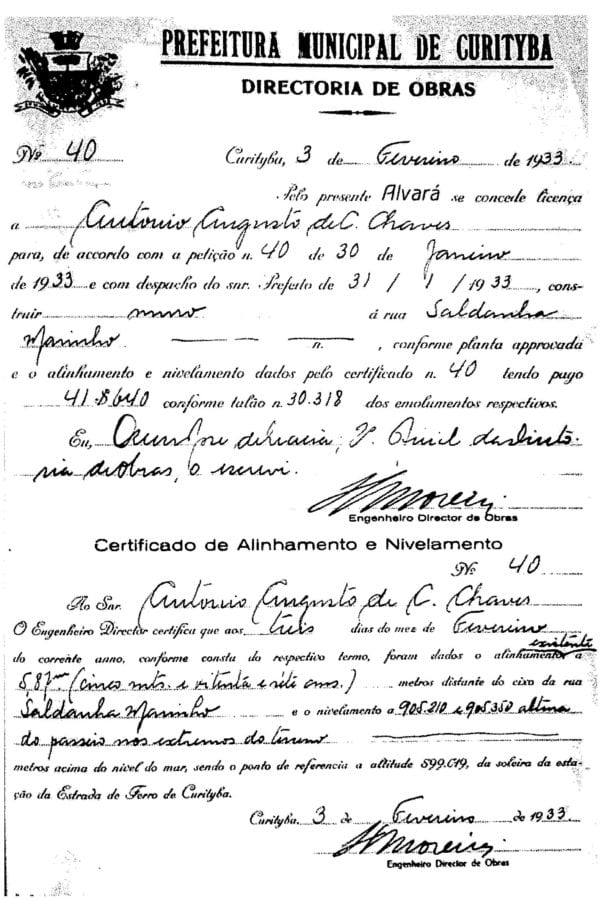 PREFEITURA MUNICIPAL DE CURITYBA
DIRECTORIA DE OBRAS
Nº 40
Curityba, 3 de Fevereiro de 1933.
Pelo presente Alvará se concede licença
a Antonio Augusto de C. Chaves
para, de accordo com a petição n. 40 de 30 de Janeiro
de 1933 e com despacho do snr. Prefeito de 31 / 1 / 1933, cons-
truir muro á rua Saldanha
Marinho n. , conforme planta approvada
e o alinhamento e nivelamento dados pelo certificado n. 40 tendo pago
41.$640 conforme talão n. 30.318 dos emolumentos respectivos.
Eu,
ria de obras, o escrevi.
Engenheiro Director de Obras
Certificado de Alinhamento e Nivelamento
Nº 40
Ao Snr. Antonio Augusto de C. Chaves
O Engenheiro Director certifica que aos tres dias do mez de Fevereiro
existente
do corrente anno, conforme consta do respectivo termo, foram dados o alinhamento a
5,87 m (cinco mts. e oitenta e sete cms.) metros distante do eixo da rua
Saldanha Marinho e o nivelamento a 905.210 e 905.350 altura
do passeio nos extremos do terreno
metros acima do nivel do mar, sendo o ponto de referencia a altitude 899.019, da soleira da esta-
ção da Estrada de Ferro de Curityba.
Curityba, 3 de Fevereiro de 1933.
Engenheiro Director de Obras